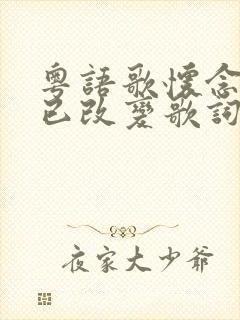 粵語歌懷念
已改變歌詞
夜家大少爺